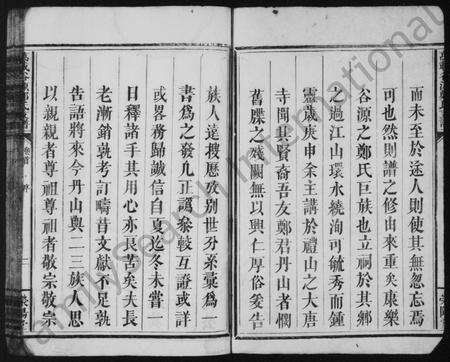 而未至於途人則使其無忽忘焉
可也然則譜之修由來重矣康樂
谷源之鄭氏巨族也立祠於其鄉
之過江山環水繞洵可毓秀而鍾
靈歲庚申余主講於禮山之大唐
寺聞其賢裔吾友鄭君丹山者憫
舊牒之殘闕無以興仁厚俗爰告
族人遠搜歷攷別世分系彙為一
書為之發凡正譌參較互證或詳
或畧務歸誠信自夏迄冬未嘗一
日釋諸手其用心亦良苦矣夫長
老漸銷孰考訂疇昔文獻不足孰
告語將來今丹山與二三族人思
以親親者尊祖尊祖者敬宗敬宗
FamilySearch International